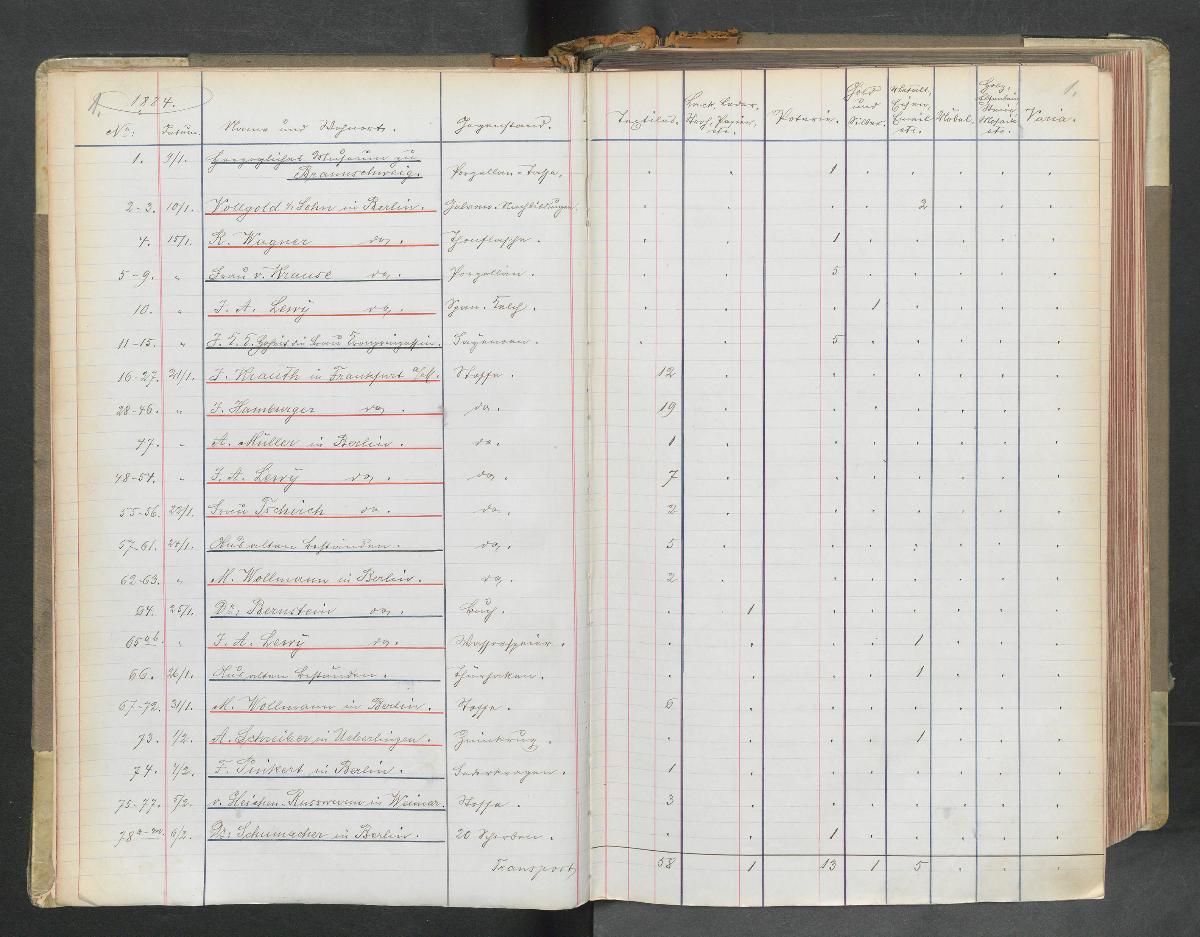 1884.
1.
No. Datum. Name und Wohnort. Gegenstand. Textiles. Lack, Leder, Stroh, Papier, etc. Poterie. Gold und Silber. Metall, Eisen, Email etc. Möbel. Holz, Elfenbein, Mosaik etc. Varia.
1. 9/1. Herzogliches Museum zu
Braunschweig. Porzellan-Tasse. . . 1 . . . . .
2-3. 10/1. Vollgold & Sohn in Berlin. Galvan. Nachbildungen. . . . . 2 . . .
4. 15/1. R. Wagner do. Thonflasche. . . 1 . . . . .
5-9. " Frau v. Krause do. Porzellan. . . 5 . . . . .
10. " J. A. Lewy do. Span. Kelch. . . . 1 . . . .
11-15. " I. K. K. Hoheit die Frau Kronprinzessin. Fayencen. . . 5 . . . . .
16-27. 21/1. J. Krauth in Frankfurt a/M. Stoffe. 12 . . . . . . .
28-46. " J. Hamburger do. do. 19 . . . . . . .
47. " A. Müller in Berlin. do. 1 . . . . . . .
48-54. " J. A. Lewy do. do. 7 . . . . . . .
55-56. 22/1. Frau Tscheich do. do. 2 . . . . . . .
57-61. 24/1. Aus alten Beständen. do. 5 . . . . . . .
62-63. " M. Wollmann in Berlin. do. 2 . . . . . . .
64. 25/1. Dr. Bernstein do. Buch. . 1 . . . . . .
65 a b. " J. A. Lewy do. Wasserspeier. . . . . 1 . . .
66. 26/1. Aus alten Beständen. Thürhaken. . . . . 1 . . .
67-72. 31/1. M. Wollmann in Berlin. Stoffe. 6 . . . . . . .
73. 1/2. A. Schreiber in Ueberlingen. Zinnkrug. . . . . 1 . . .
74. 4/2. F. Pinkert in Berlin. Lederkragen. 1 . . . . . . .
75-77. 5/2. v. Gleichen-Russwurm in Weimar. Stoffe. 3 . . . . . . .
78 6/2. Dr. Schumacher in Berlin. 20 Scherben. . . 1 . . . . .
Transport 58 1 13 1 5 . . .